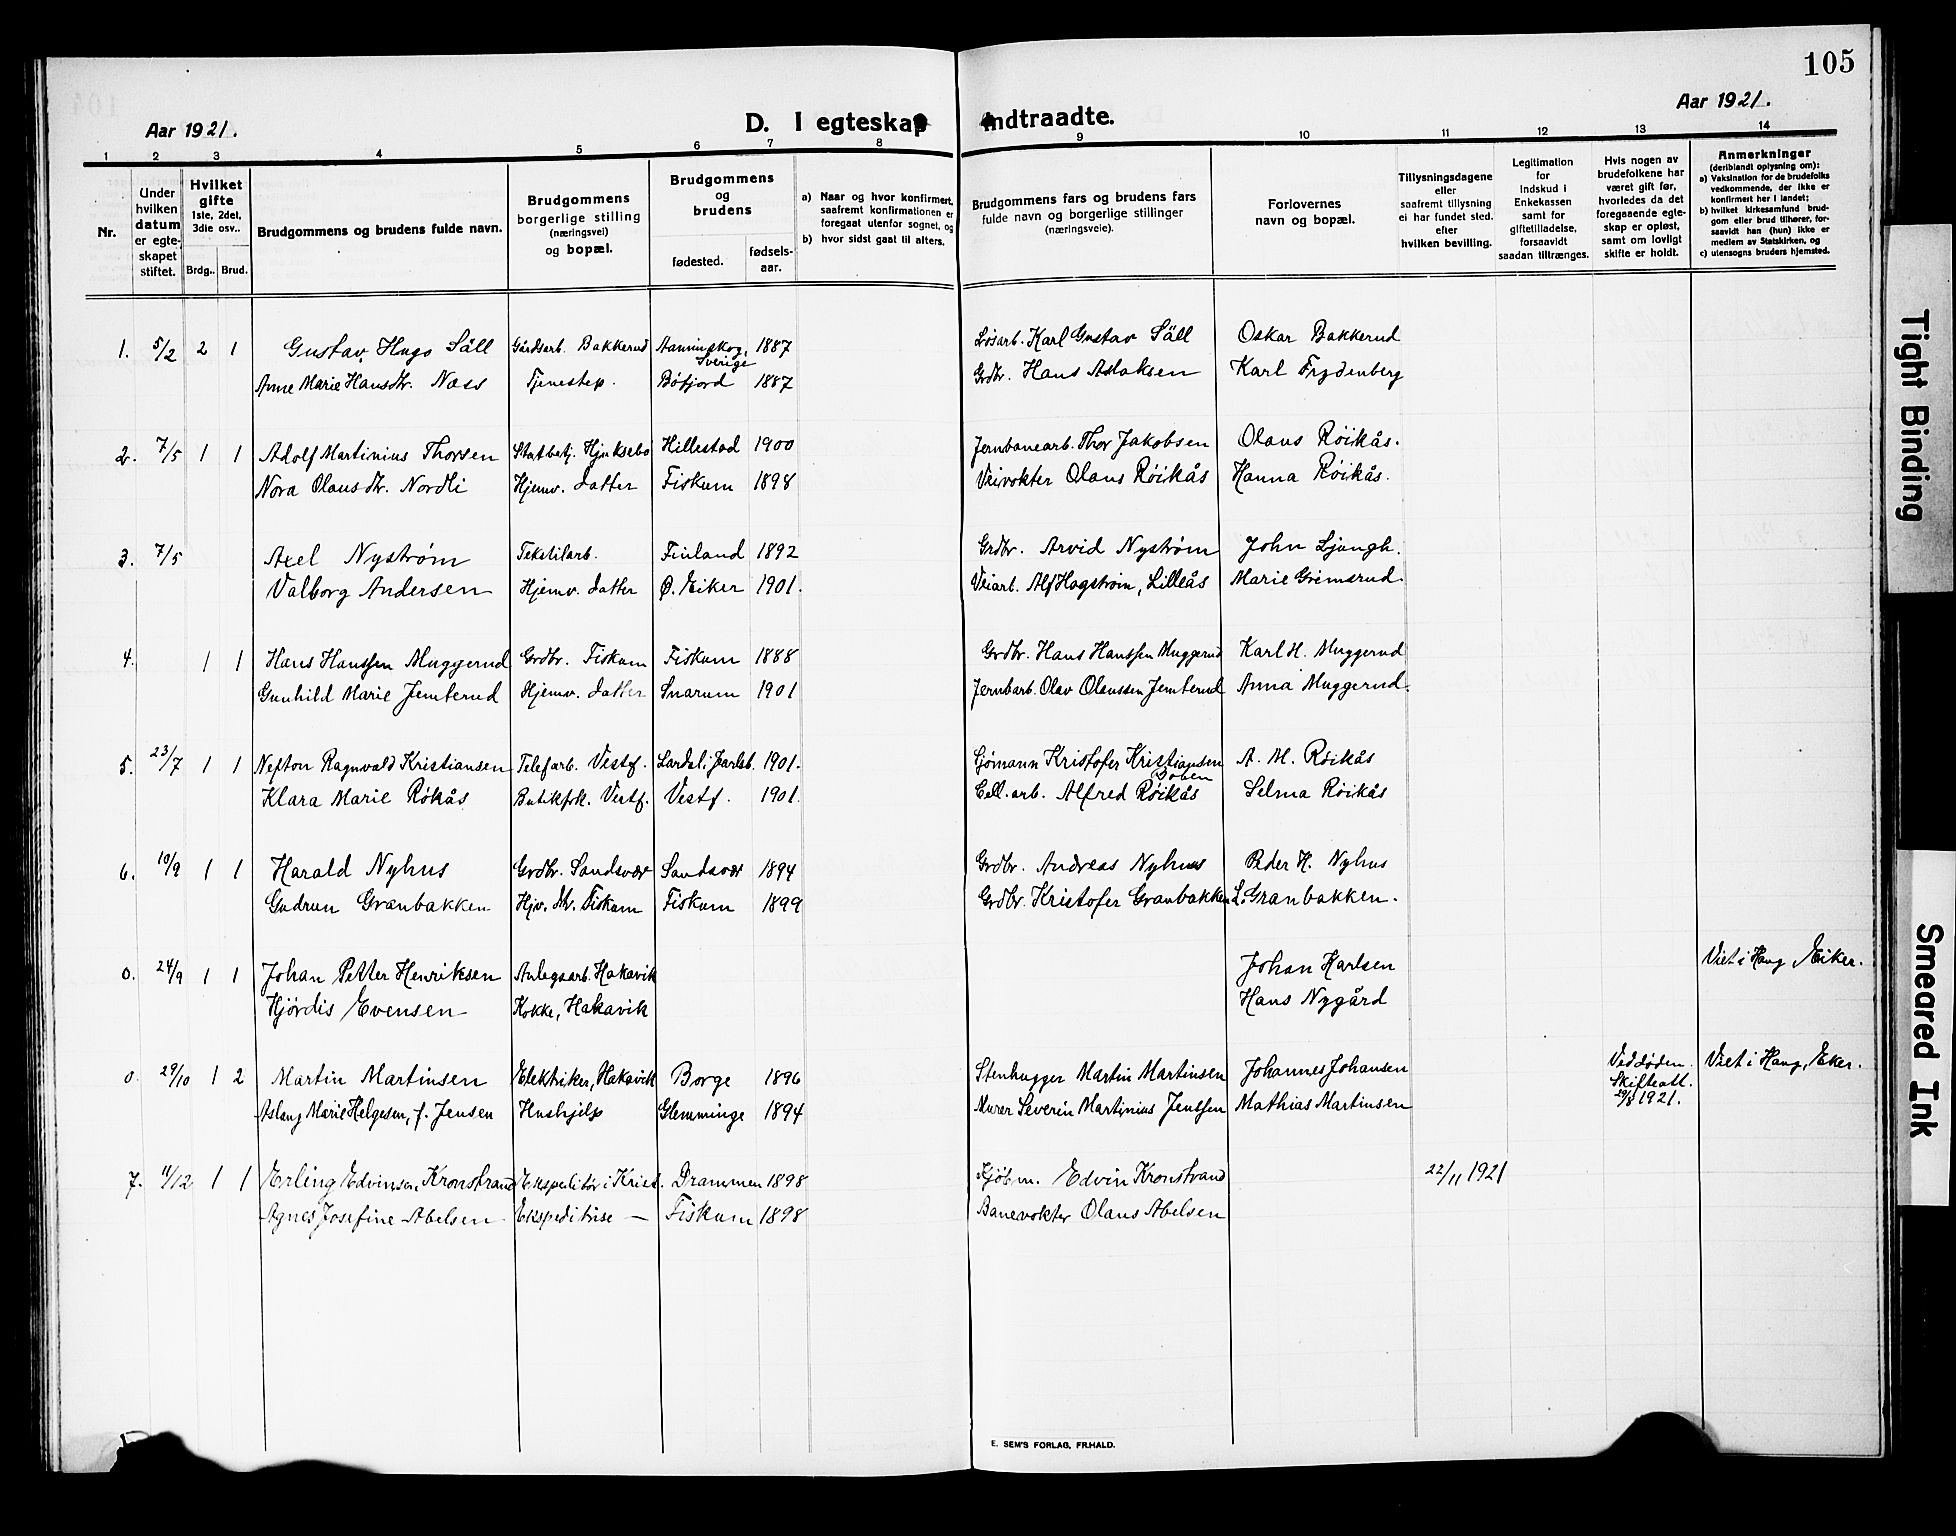 105
Aar 1921.
D. I egteskap indtraadte.
Aar 1921.
1 2 3 4 5 6 7 8 9 10 11 12 13 14
Nr.
Under hvilken datum er egte-skapet stiftet.
Hvilket gifte 1ste, 2det, 3die osv..
Brdg.. Brud.
Brudgommens og brudens fulde navn.
Brudgommens borgerlige stilling (næringsvei) og bopæl.
Brudgommens og brudens
fødested.
fødsels-aar.
a) Naar og hvor konfirmert, saafremt konfirmationen er foregaat utenfor sognet, og
b) hvor sidst gaat til alters.
Brudgommens fars og brudens fars fulde navn og borgerlige stillinger (næringsveie).
Forlovernes navn og bopæl.
Tillysningsdagene eller saafremt tillysning ei har fundet sted. efter hvilken bevilling.
Legitimation for Indskud i Enkekassen samt for giftetilladelse, forsaavidt saadan tiltrænges.
Hvis nogen av brudefolkene har været gift før, hvorledes da det foregaaende egte-skap er opløst, samt om lovligt skifte er holdt.
Anmerkninger (deriblandt oplysning om):
a) Vaksination for de brudefolks vedkommende, der ikke er konfirmert her i landet;
b) hvilket kirkesamfund brud-gom eller brud tilhører, for-saavidt han (hun) ikke er medlem av Statskirken, og
c) utensogns bruders hjemsted.
1. 5/2 2 1 Gustav Hugo Säll Gårdsarb. Bakkerud Aanimskog, Sverige 1887 Løsarb. Karl Gustav Säll Oskar Bakkerud
Anne Marie Hansdtr. Næss Tjenestep. Bøfjord 1887 Grdbr. Hans Aslaksen Karl Frydenberg
2. 7/5 1 1 Adolf Martinius Thorsen Statbetj. Hjuksebø Hillestad 1900 Jernbanearb. Thor Jakobsen Olaus Røikås.
Nora Olausdtr. Nordli Hjemv. datter Fiskum 1898 Veivokter Olaus Røikås Hanna Røikås.
3. 7/5 Axel Nystrøm Tekstilarb. Finland 1892 Grdbr. Arvid Nystrøm John Ljungh.
Valborg Andersen Hjemv. datter Ø. Eiker 1901. Veiarb. Alf Hagstrøm, Lilleås Marie Grimsrud.
4. 1 1 Hans Hanssen Muggerud Grdbr. Fiskum Fiskum 1888 Grdbr. Hans Hanssen Muggerud Karl H. Muggerud
Gunhild Marie Jemterud Hjemv. datter Snarum 1901 Jernbarb. Olav Olaussen Jemterud Anna Muggerud.
5. 23/7 1 1 Nefton Ragnvald Kristiansen Telefarb. Vestf. Lardal i Jarlsb. 1901. Sjømann Kristofer Kristiansen A. M. Røikås
Klara Marie Rökås Butikfrk. Vestf. Vestf. 1901. Cell. arb. Alfred Røikås Selma Røikås
6. 10/9 1 1 Harald Nyhus Grdbr. Sandsvær Sandsvær 1894 Grdbr. Andreas Nyhus Peder H. Nyhus
Gudrun Granbakken Hjv. dtr. Fiskum Fiskum 1899 Grdbr. Kristofer Granbakken L. Granbakken.
0. 24/9 1 1 Johan Petter Henriksen Anlegsarb. Hakavik Johan Karlsen Viet i Haug, Eiker.
Hjördis Evensen Kokke, Hakavik Hans Nygård
0 29/10 1 2 Martin Martinsen Elektriker, Hakavik Borge 1896 Stenhugger Martin Martinsen Johannes Johansen Ved døden. Skifteatt. 29/8 1921. Viet i Haug, Eker.
Aslaug Marie Helgesen, f. Jensen Hushjelp Glemminge 1894 Murer Severin Martinius Jentsen Mathias Martinsen
7. 11/12 1 1 Erling Edvinsen Kronstrand Ekspeditör i Krist. Drammen 1898 Kjøbm. Edvin Kronstrand 22/11 1921
Agnes Josefine Abelsen Ekspeditrise — Fiskum 1898 Banevokter Olaus Abelsen
E. SEM'S FORLAG, FR.HALD.
Tight Binding
Smeared Ink